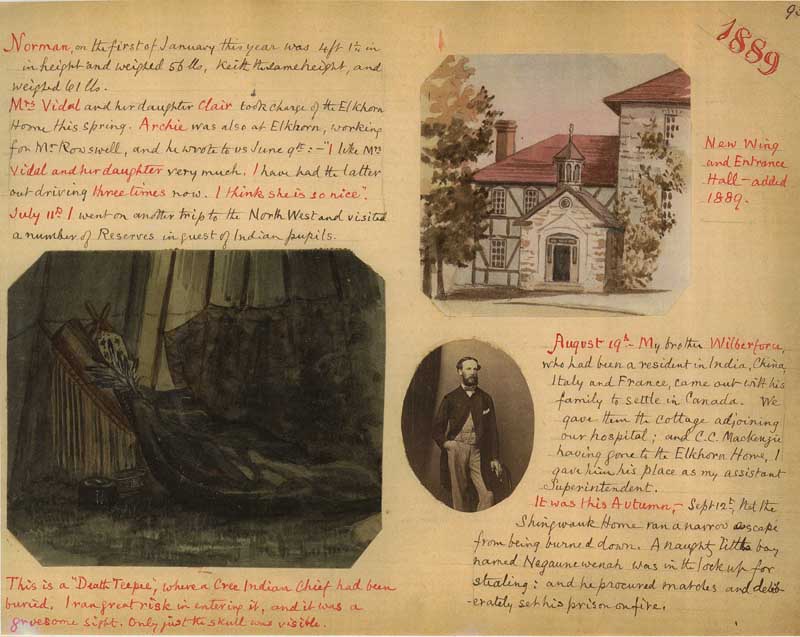 1889
Norman, on the first of January this year was 4ft 1½ in
in height and weighed 56 lbs, Keith the same height, and
weighed 61 lbs.
Mrs Vidal and her daughter Clair took charge of the Elkhorn
Home this spring. Archie was also at Elkhorn, working
for Mr Rowswell, and he wrote to us June 9th:- "I like Mrs
Vidal and her daughter very much. I have had the latter
out driving three times now. I think she is so nice".
July 11th I went on another trip to the North West and visited
a number of Reserves in quest of Indian pupils.
This is a "Death Teepee", where a Cree Indian Chief had been
buried. I ran great risk in entering it, and it was a
gruesome sight. Only just the skull was visible.
New Wing
and Entrance
Hall - added
1889.
August 19th - My brother Wilberforce,
who had been a resident in India, China,
Italy and France, came out with his
family to settle in Canada. We
gave them the cottage adjoining
our hospital; and C.C. Mackenzie
having gone to the Elkhorn Home, I
gave him his place as my assistant
Superintendent.
It was this Autumn,- Sept 12th, that the
Shingwauk Home ran a narrow escape
from being burned down. A naughty little boy
named Negaunewenah was in the lock up for
stealing: and he procured matches and delib-
erately set his prison on fire.